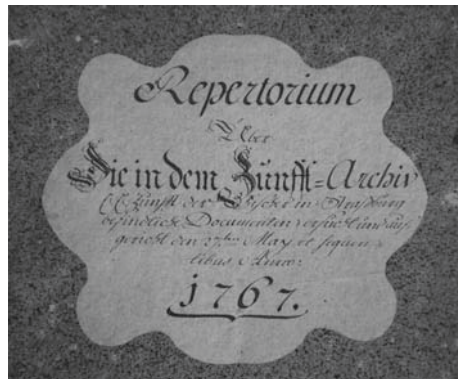 Repertorium
Über
Die in dem Zunfft=Archiv
E. E. Zunfft der Fischer in Straßburg
befindliche Documenten, ersucht und auf,
gericht den 27ten May, et sequen,
tibus Anno:
1767.